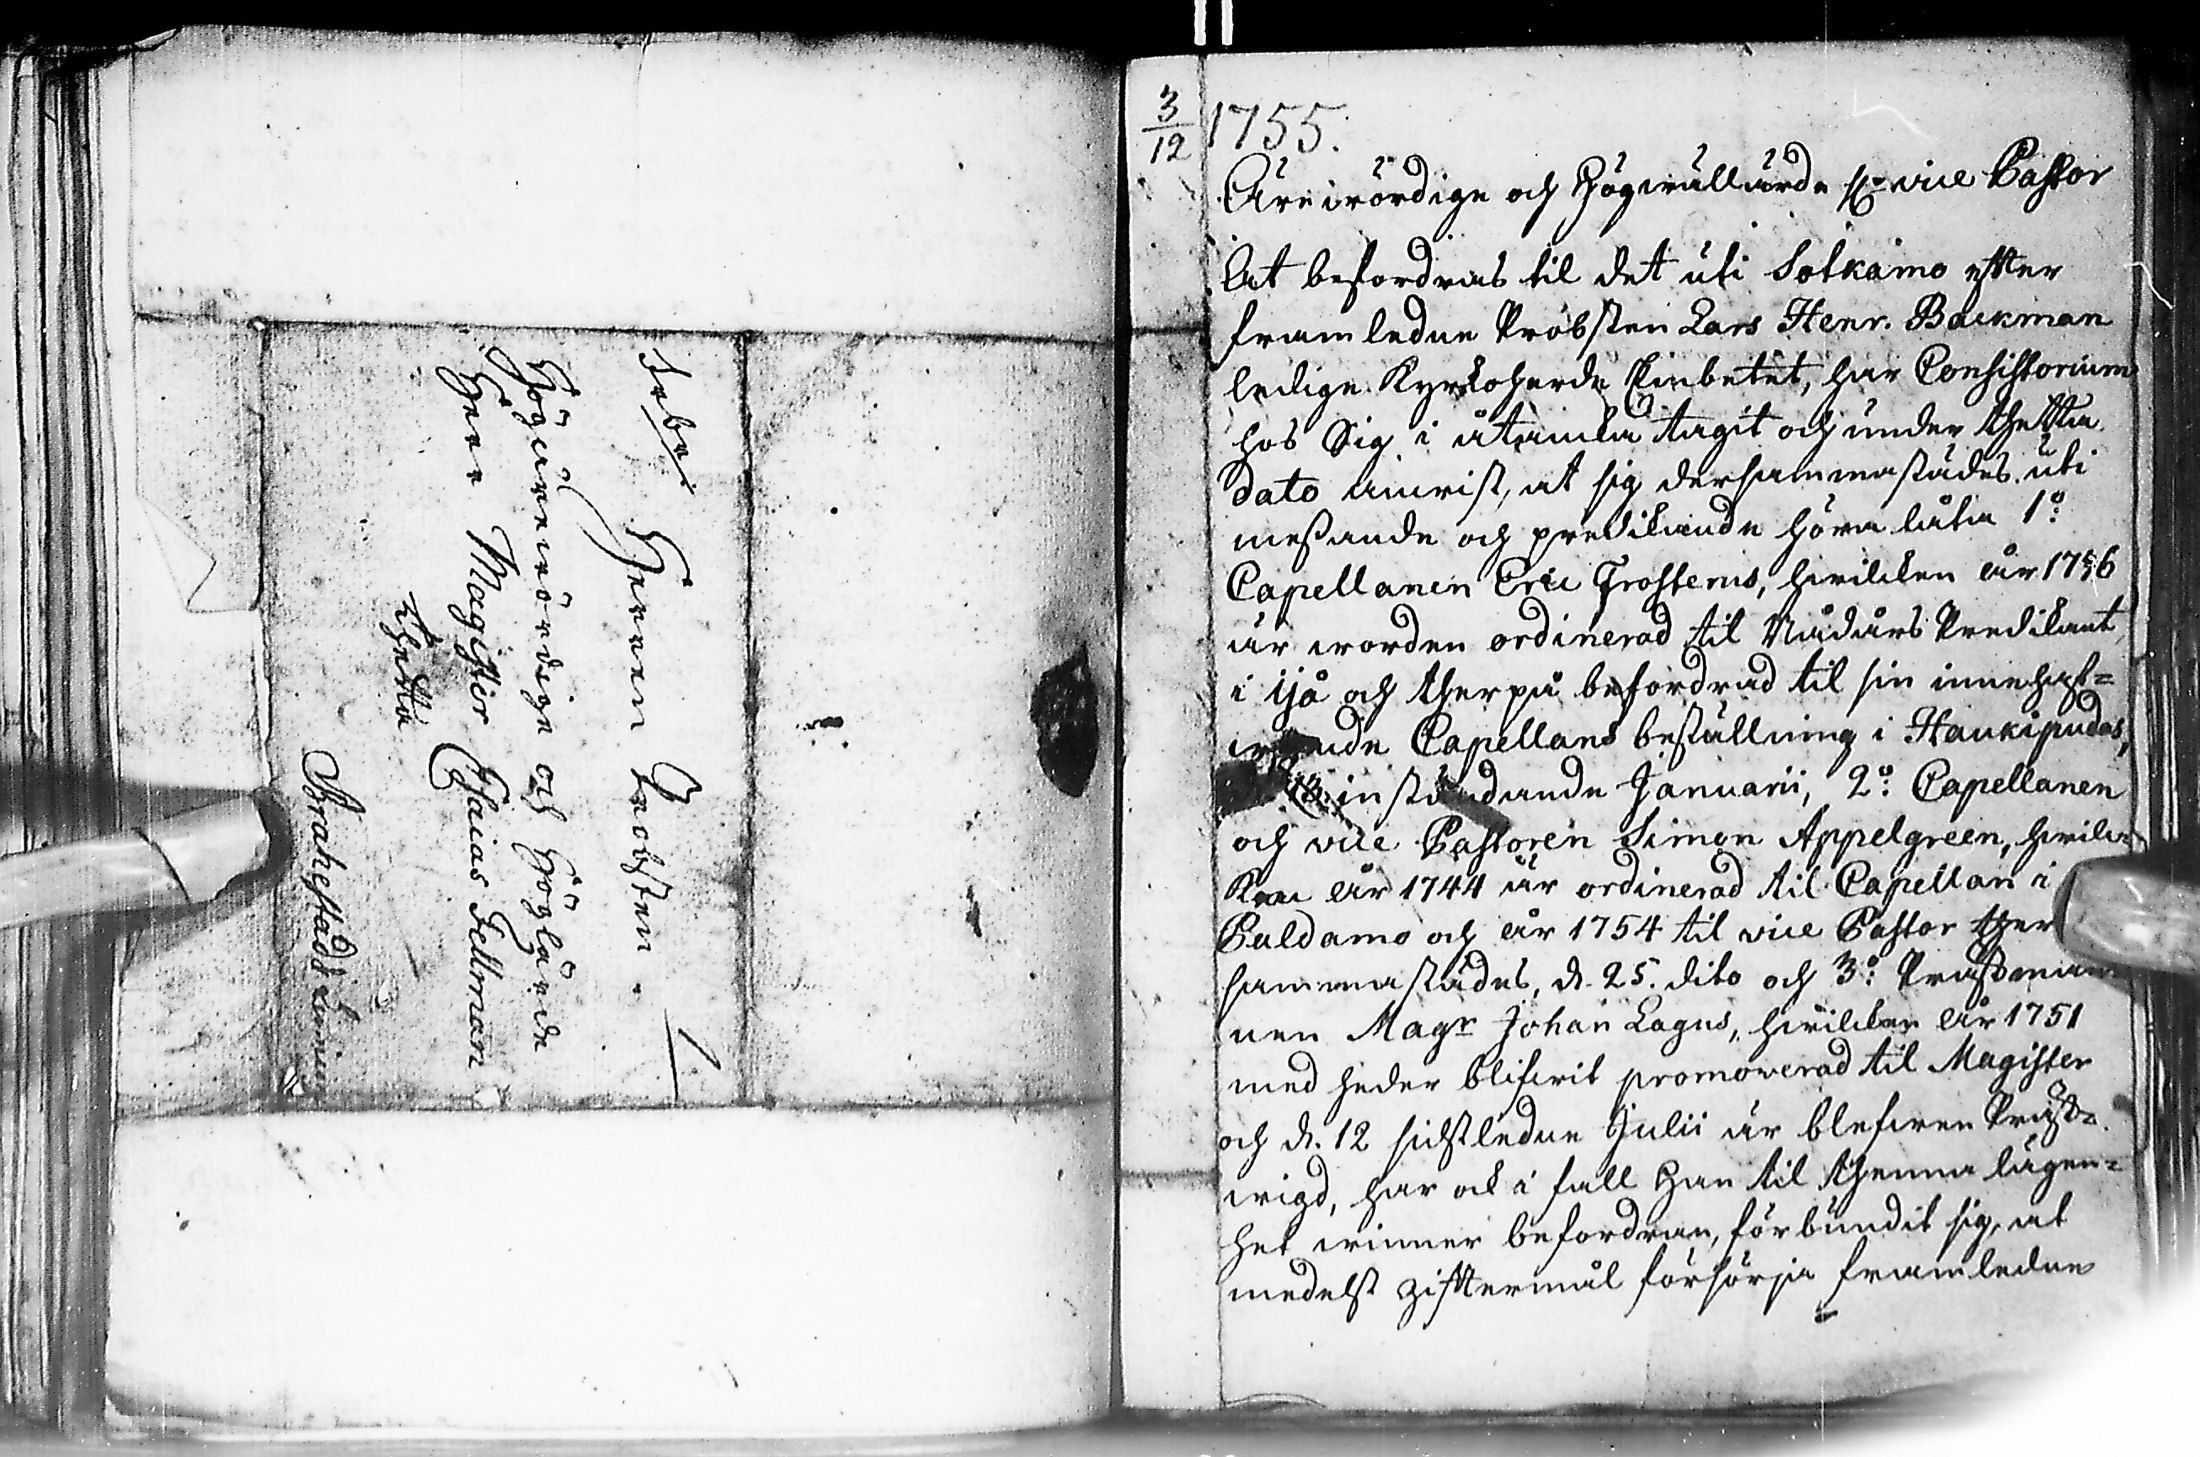 Herren Probsten.
Högärewördige och Höglärde
Herr Magister Esaias Fellman
thetta
Brahestad

3/12 1755.
Ärewördige och Högwällärde H. vice Pastor
At befordras til det uti Sotkamo efter
framledne Probsten Lars Henr. Backman
ledige Kyrkoherde Embetet, har Consistorium
hos Sig i åtancka tagit och under thetta
dato anwist, at sig dersammastädes uti
messande och predikande höra låta 1:o
Capellanen Eric Frosterus, hwilcken år 1736
är worden ordinerad til Nådårs Predikant
i Ijå och therpå befordrad til sin innehaf-
wande Capellans beställning i Haukipudas,
instundande Januarii, 2:o Capellanen
och vice Pastoren Simon Appelgreen, hwilc-
ken år 1744 är ordinerad til Capellan i
Paldamo och år 1754 til vice Pastor ther
sammastädes, d. 25. dito och 3:o Prästman-
nen Mag:r Johan Lagus, hwilcken år 1751
med heder blifwit promoverad til Magister
och d. 12 sidstledne Julii är blefwen Präst-
wigd, har ock i fall Han til thenna lägen-
het winner befordran, förbundit sig, at
medelst gifftermål försörja framledne